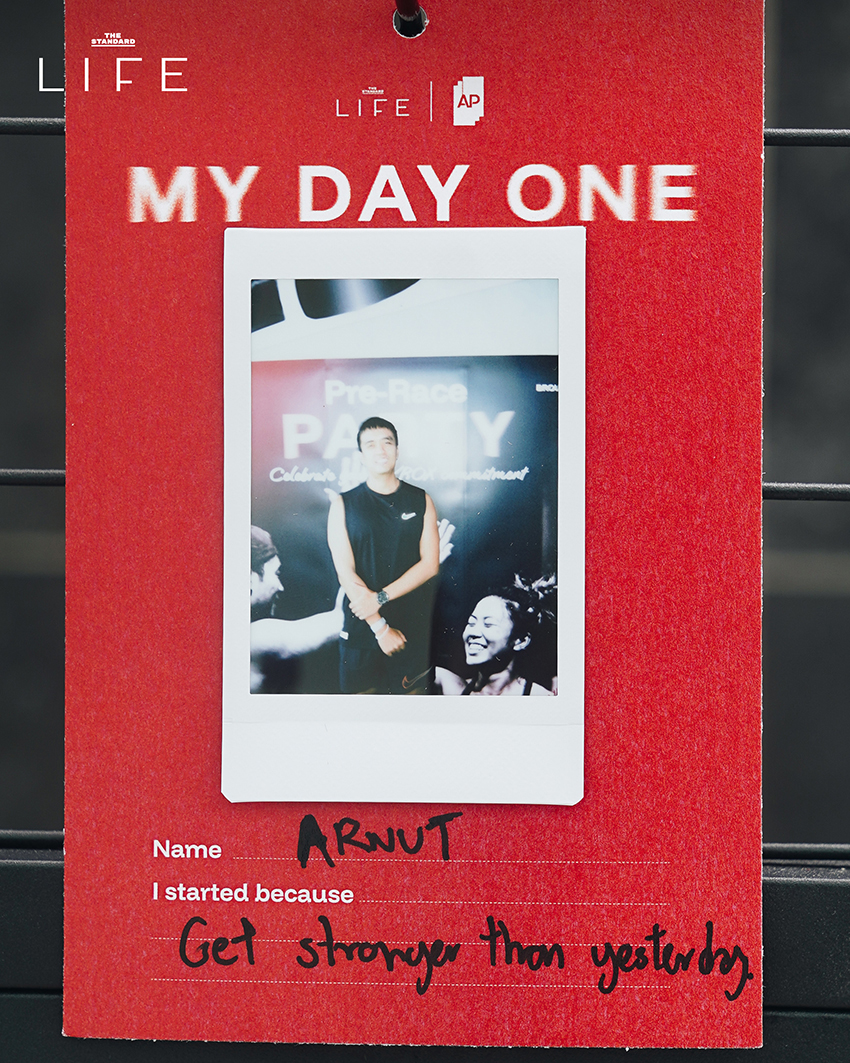 THE
STANDARD
LIFE
THE
STANDARD
LIFE | AP
MY DAY ONE
Pre-Race
PARTY
Celebrate commitment
Name ARNUT
I started because
Get stronger than yesterday.